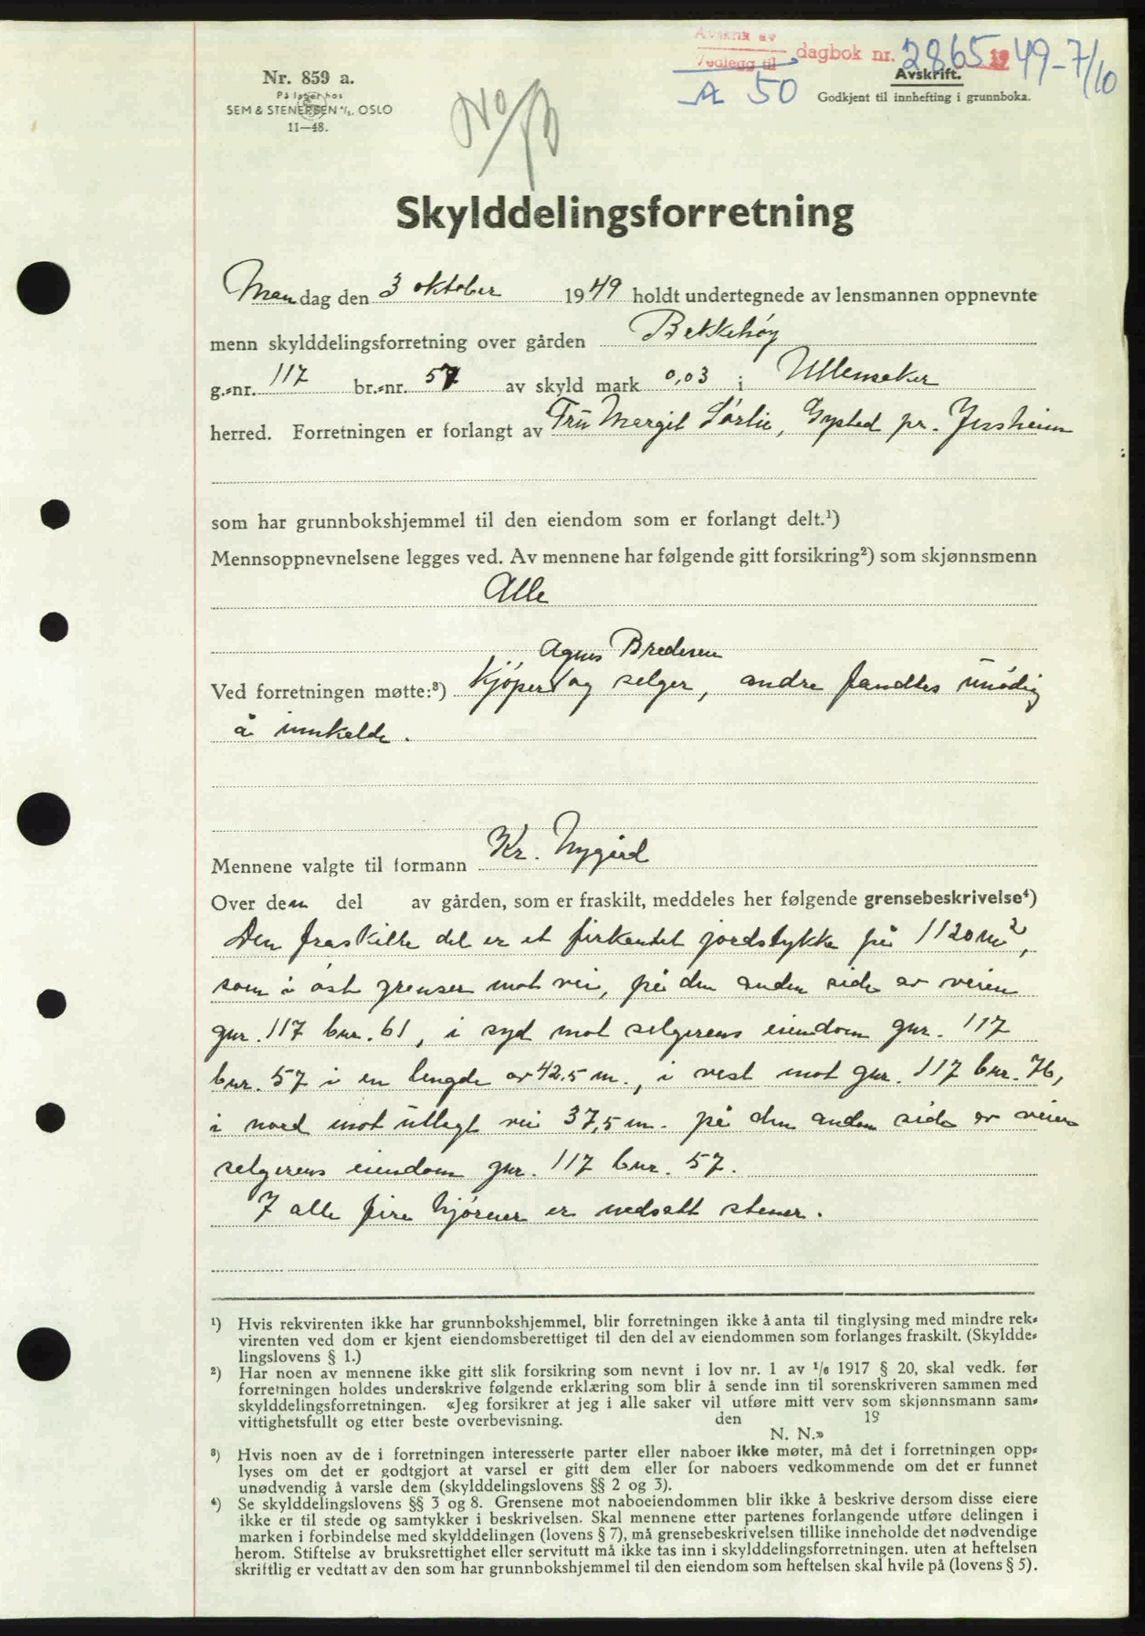 Avskrift av
Vedlegg til dagbok nr. 2865 1949-7/10
A 50
Avskrift.
Godkjent til innhefting i grunnboka.
Nr. 859 a.
På lager hos
SEM & STENERSEN A/S. OSLO
11—48.
Skylddelingsforretning
Mandag den 3 oktober 1949 holdt undertegnede av lensmannen oppnevnte
menn skylddelingsforretning over gården Bekkehøy
g.-nr. 117 br.-nr. 57 av skyld mark 0,03 i Ullensaker
herred. Forretningen er forlangt av Frü Margit Sørlie, Gysted pr. Jessheim
som har grunnbokshjemmel til den eiendom som er forlangt delt.¹)
Mennsoppnevnelsene legges ved. Av mennene har følgende gitt forsikring²) som skjønnsmenn
Alle
Agnes Bredesen
Ved forretningen møtte:³) Kjøper og selger, andre fandtes ünødig
å innkalde.
Mennene valgte til formann Kr. Nygård
Over den del av gården, som er fraskilt, meddeles her følgende grensebeskrivelse⁴)
Den fraskilte del er et firkantet jordstykke på 1120 m²,
som i øst grenser mot vei, på den anden side av veien
gnr. 117 bnr. 61, i syd mot selgerens eiendom gnr. 117
bnr. 57 i en lengde av 42,5 m., i vest mot gnr. 117 bnr. 76,
i nord mot ütlagt vei 37,5 m. på den anden side av veien
selgerens eiendom gnr. 117 bnr. 57.
I alle fire hjørner er nedsatt stener.
¹) Hvis rekvirenten ikke har grunnbokshjemmel, blir forretningen ikke å anta til tinglysing med mindre rek-
virenten ved dom er kjent eiendomsberettiget til den del av eiendommen som forlanges fraskilt. (Skyldde-
lingslovens § 1.)
²) Har noen av mennene ikke gitt slik forsikring som nevnt i lov nr. 1 av 1/6 1917 § 20, skal vedk. før
forretningen holdes underskrive følgende erklæring som blir å sende inn til sorenskriveren sammen med
skylddelingsforretningen. «Jeg forsikrer at jeg i alle saker vil utføre mitt verv som skjønnsmann sam-
vittighetsfullt og etter beste overbevisning. den 19
N. N.»
³) Hvis noen av de i forretningen interesserte parter eller naboer ikke møter, må det i forretningen opp-
lyses om det er godtgjort at varsel er gitt dem eller for naboers vedkommende om det er funnet
unødvendig å varsle dem (skylddelingslovens §§ 2 og 3).
⁴) Se skylddelingslovens §§ 3 og 8. Grensene mot naboeiendommen blir ikke å beskrive dersom disse eiere
ikke er til stede og samtykker i beskrivelsen. Skal mennene etter partenes forlangende utføre delingen i
marken i forbindelse med skylddelingen (lovens § 7), må grensebeskrivelsen tillike inneholde det nødvendige
herom. Stiftelse av bruksrettighet eller servitutt må ikke tas inn i skylddelingsforretningen. uten at heftelsen
skriftlig er vedtatt av den som har grunnbokshjemmel til den eiendom som heftelsen skal hvile på (lovens § 5).